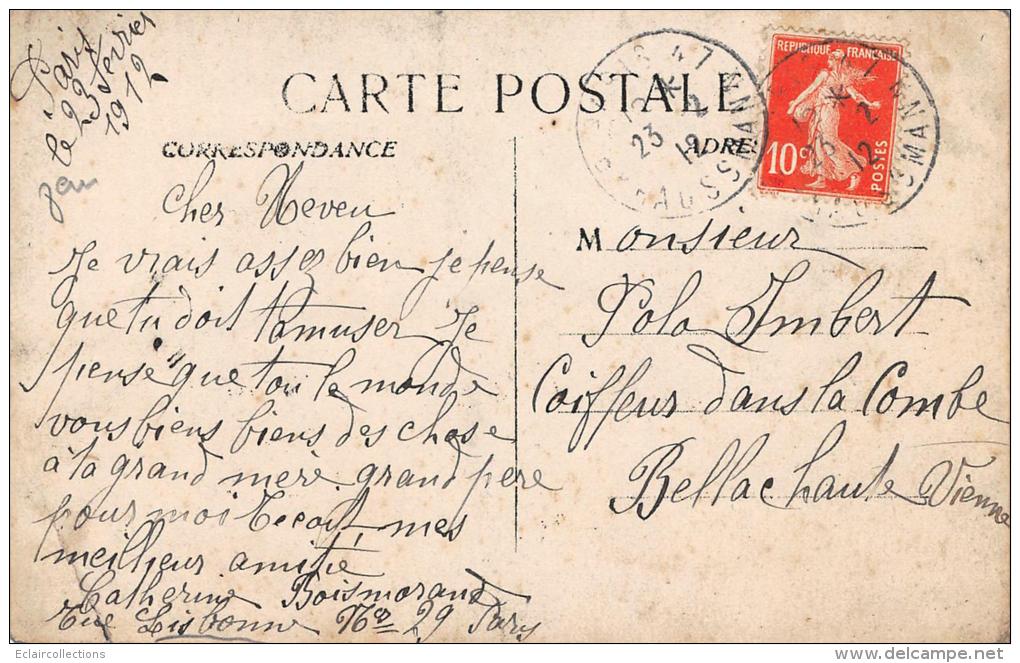 Paris
le 23 fevrier
1912
CARTE POSTALE
CORRESPONDANCE
ADRES
REPUBLIQUE FRANÇAISE
10 c
POSTES
23 2 12
Cher Neveu
Je vrais assez bien je pense
que tu doit t'amuser Je
pense que tou le monde
vous biens biens des chose
à ta grand mère grand pere
pour moi Recoit mes
meilleur amitié
Catherine Boismorand
Rue Lisbonne No 29 Paris
Monsieur
Polo Imbert
Coiffeur dans la Combe
Bellac haute Vienne
Eclaircollections
www.delcampe.net